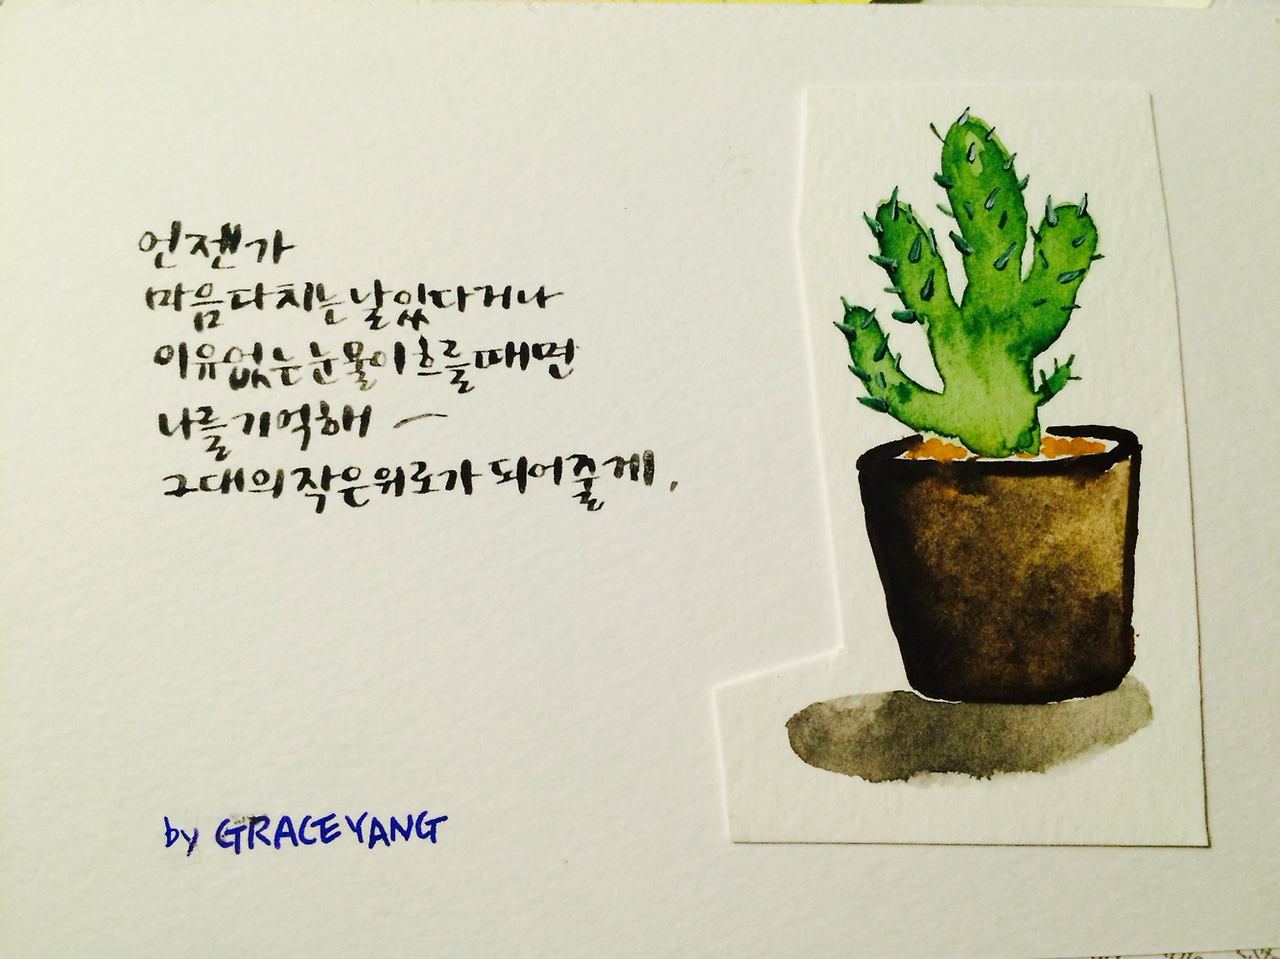 언젠가
마음 다치는 날 있다거나
이유없는 눈물이 흐를때면
나를 기억해 ~
그대의 작은 위로가 되어줄게.
by GRACE YANG